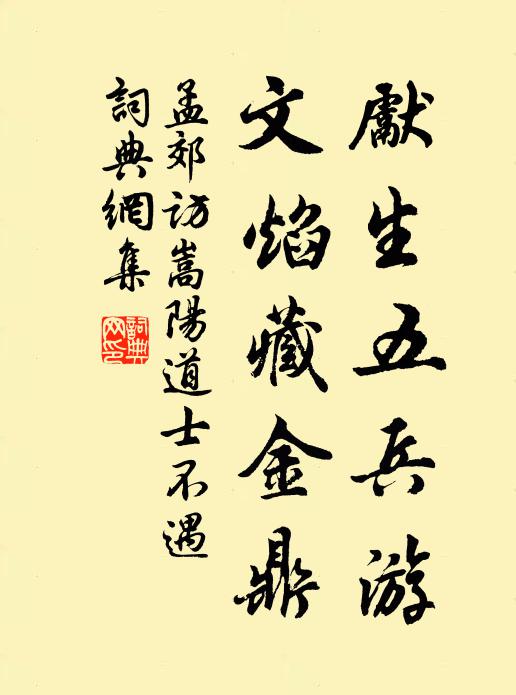 獻生五兵游
文焰藏金鼎
孟郊訪嵩陽道士不遇
詞典網集
詞典
网印